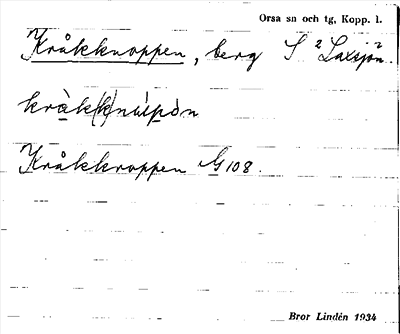 Orsa sn och tg, Kopp. l.
Kråkknoppen, berg S ²Laxsjön.
kråk(k)nùpòn
Kråkknoppen G 108.
Bror Lindén 1934